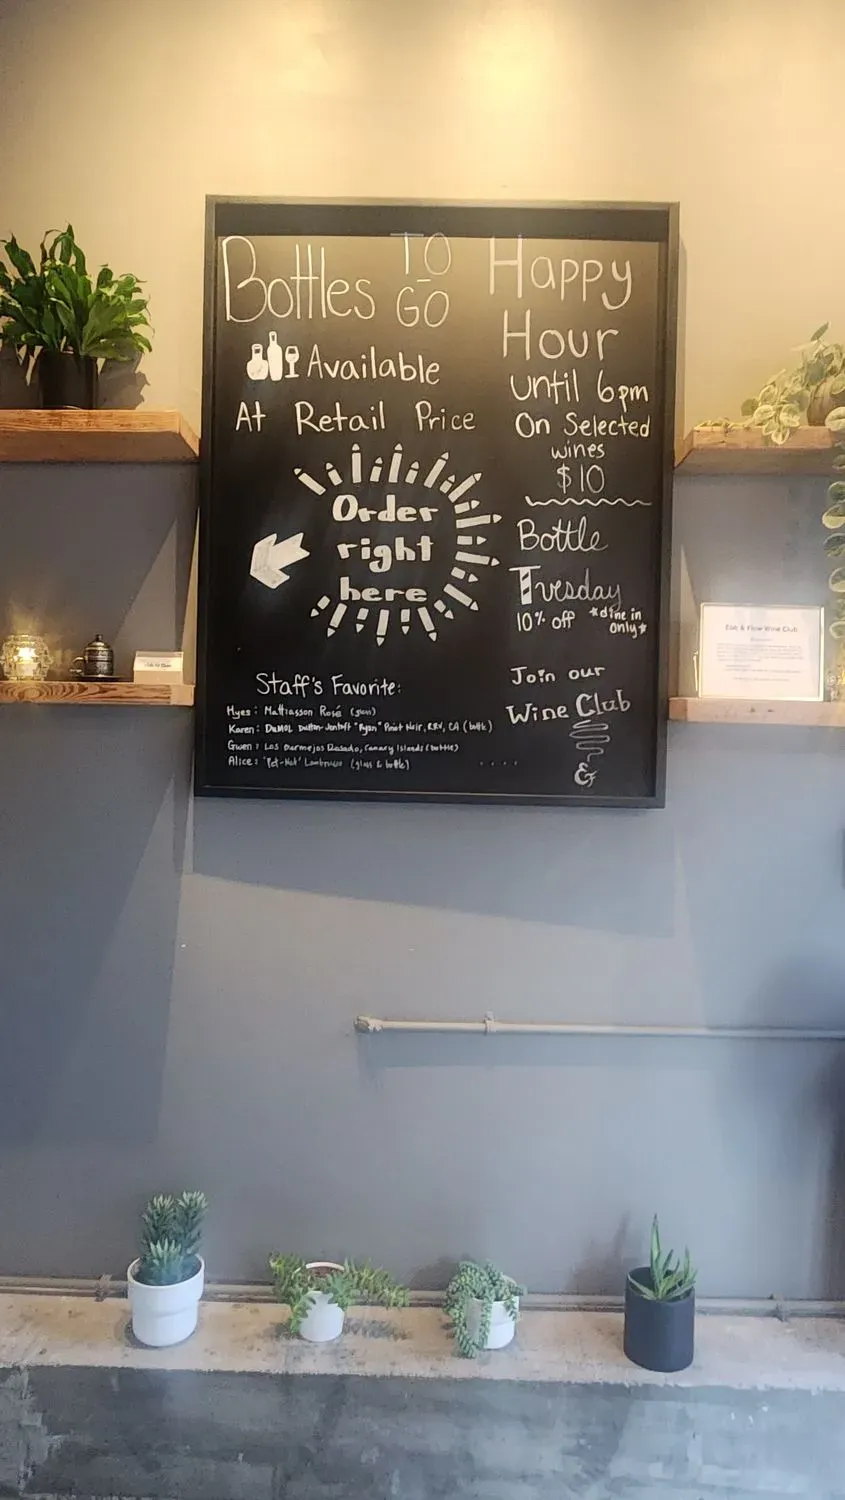 Bottles TO GO
Available
At Retail Price
Order
right
here
Staff's Favorite:
Hyes: Matthiasson Rosé (glass)
Karen: DuMOL Dutton-Jentoft "Ryan" Pinot Noir, RRV, CA (bottle)
Gwen: Los Bermejos Rosado, Canary Islands (bottle)
Alice: 'Pet-Nat' Lambrusco (glass & bottle)
Happy
Hour
until 6pm
On Selected
wines
$10
Bottle
Tuesday
10% off *dine in
only*
Join our
Wine Club
&
Ebb & Flow Wine Club